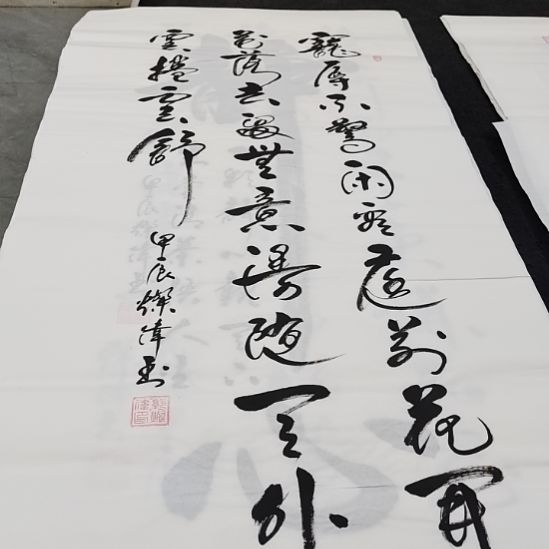 寵辱不驚閑看庭前花開
花落去留無意漫隨天外
雲捲雲舒
甲辰